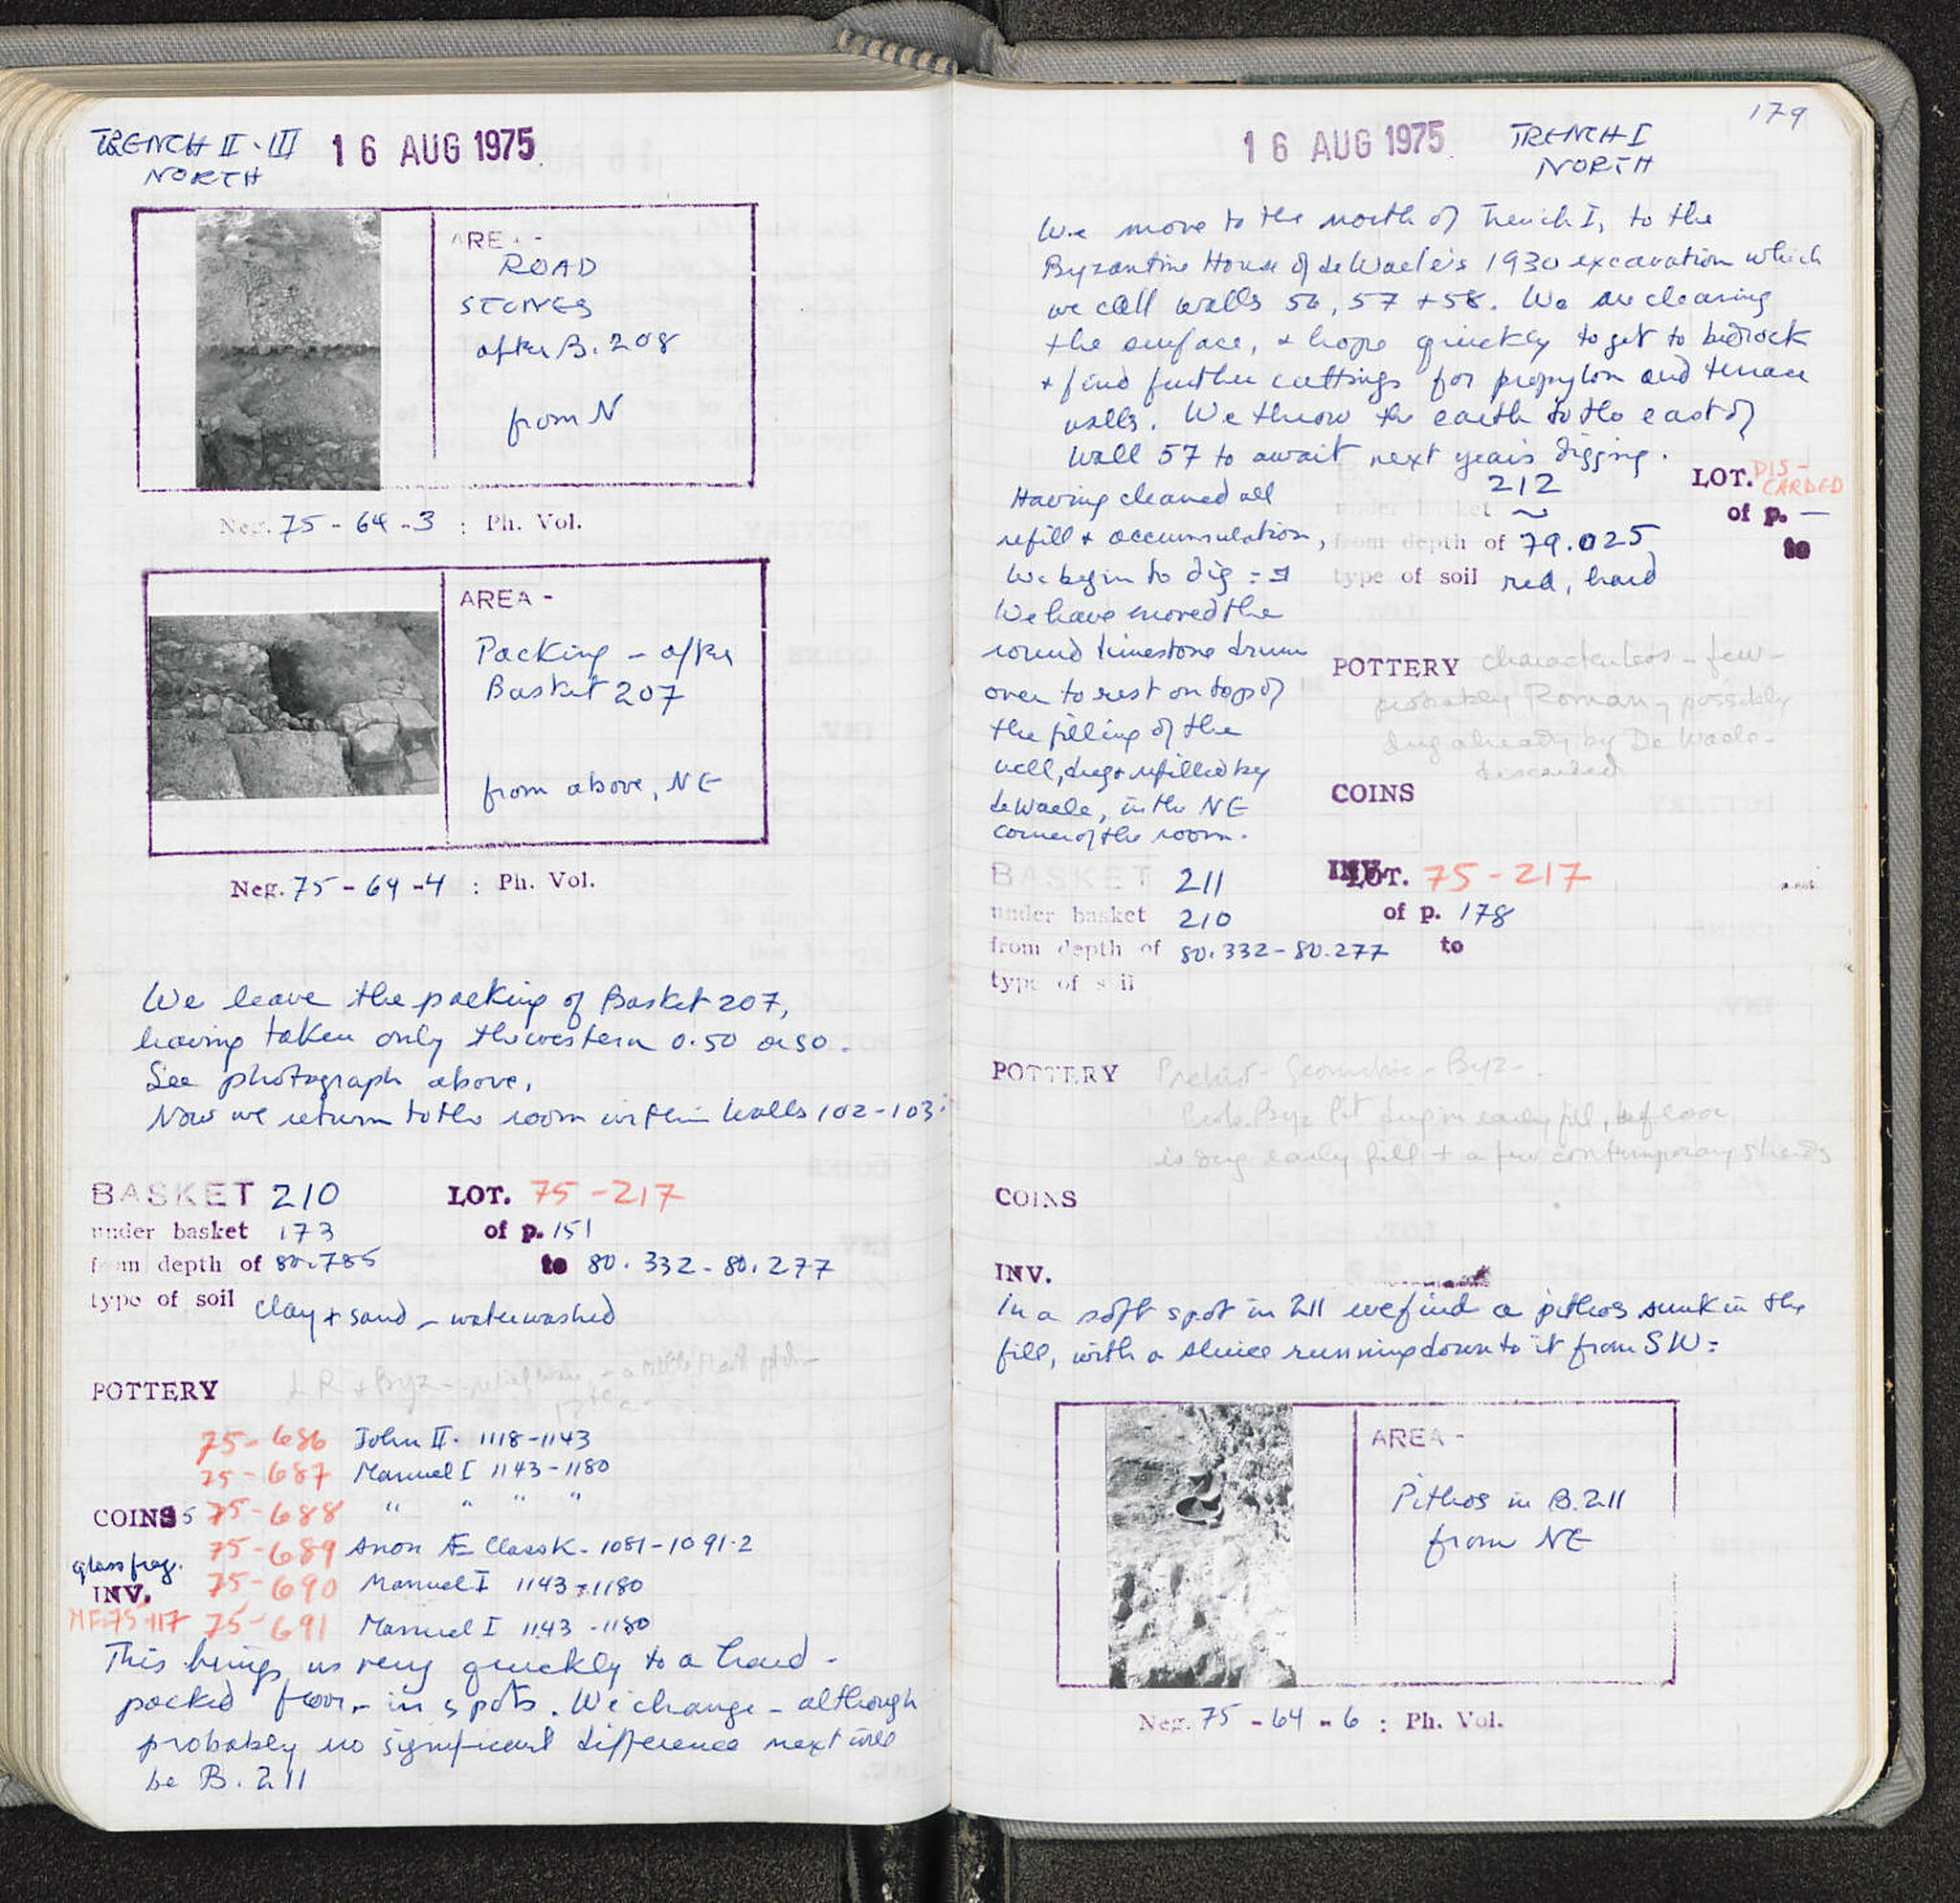 TRENCH II-III
NORTH
16 AUG 1975
AREA -
ROAD
STONES
after B. 208
from N
Neg. 75-64-3 : Ph. Vol.
AREA -
Packing - after
Basket 207
from above, NE
Neg. 75-64-4 : Ph. Vol.
We leave the packing of Basket 207,
having taken only the western 0.50 or so.
See photograph above.
Now we return to the room within walls 102-103:
BASKET 210
under basket 173
from depth of 80.785
type of soil clay + sand - waterwashed
LOT. 75-217
of p. 151
to 80.332-80.277
POTTERY LR + Byz -
12th c.
75-686 John II. 1118-1143
75-687 Manuel I 1143-1180
COINS 5 75-688 " " " "
75-689 Anon Æ Class K. 1081-1091.2
glass frag.
INV. 75-690 Manuel I 1143-1180
MF-75-117 75-691 Manuel I 1143-1180
This brings us very quickly to a hard-
packed floor - in spots. We change - although
probably no significant difference next will
be B. 211
179
16 AUG 1975
TRENCH I
NORTH
We move to the north of Trench I, to the
Byzantine House of deWaele's 1930 excavation which
we call walls 56, 57 + 58. We are cleaning
the surface, + hope quickly to get to bedrock
+ find further cuttings for propylon and terrace
walls. We throw the earth to the east of
Wall 57 to await next year's digging.
Having cleaned all
refill + accumulation,
We begin to dig:
We have moved the
round limestone drum
over to rest on top of
the filling of the
well, dug + refilled by
deWaele, in the NE
corner of the room.
212
under basket ~
from depth of 79.025
type of soil red, hard
LOT. DIS-
CARDED
of p. —
to
POTTERY characterless - few -
probably Roman, possibly
dug already by De Waele -
discarded
COINS
INV.
BASKET 211
under basket 210
from depth of 80.332-80.277
type of soil
LOT. 75-217
of p. 178
to
POTTERY Prehist - Geometric - Byz -
Prob. Byz Pit dug in early fill,
is dug early fill + a few contemporary sherds
COINS
INV.
In a soft spot in 211 we find a pithos sunk in the
fill, with a sluice running down to it from SW:
AREA -
Pithos in B.211
from NE
Neg. 75-64-6 : Ph. Vol.